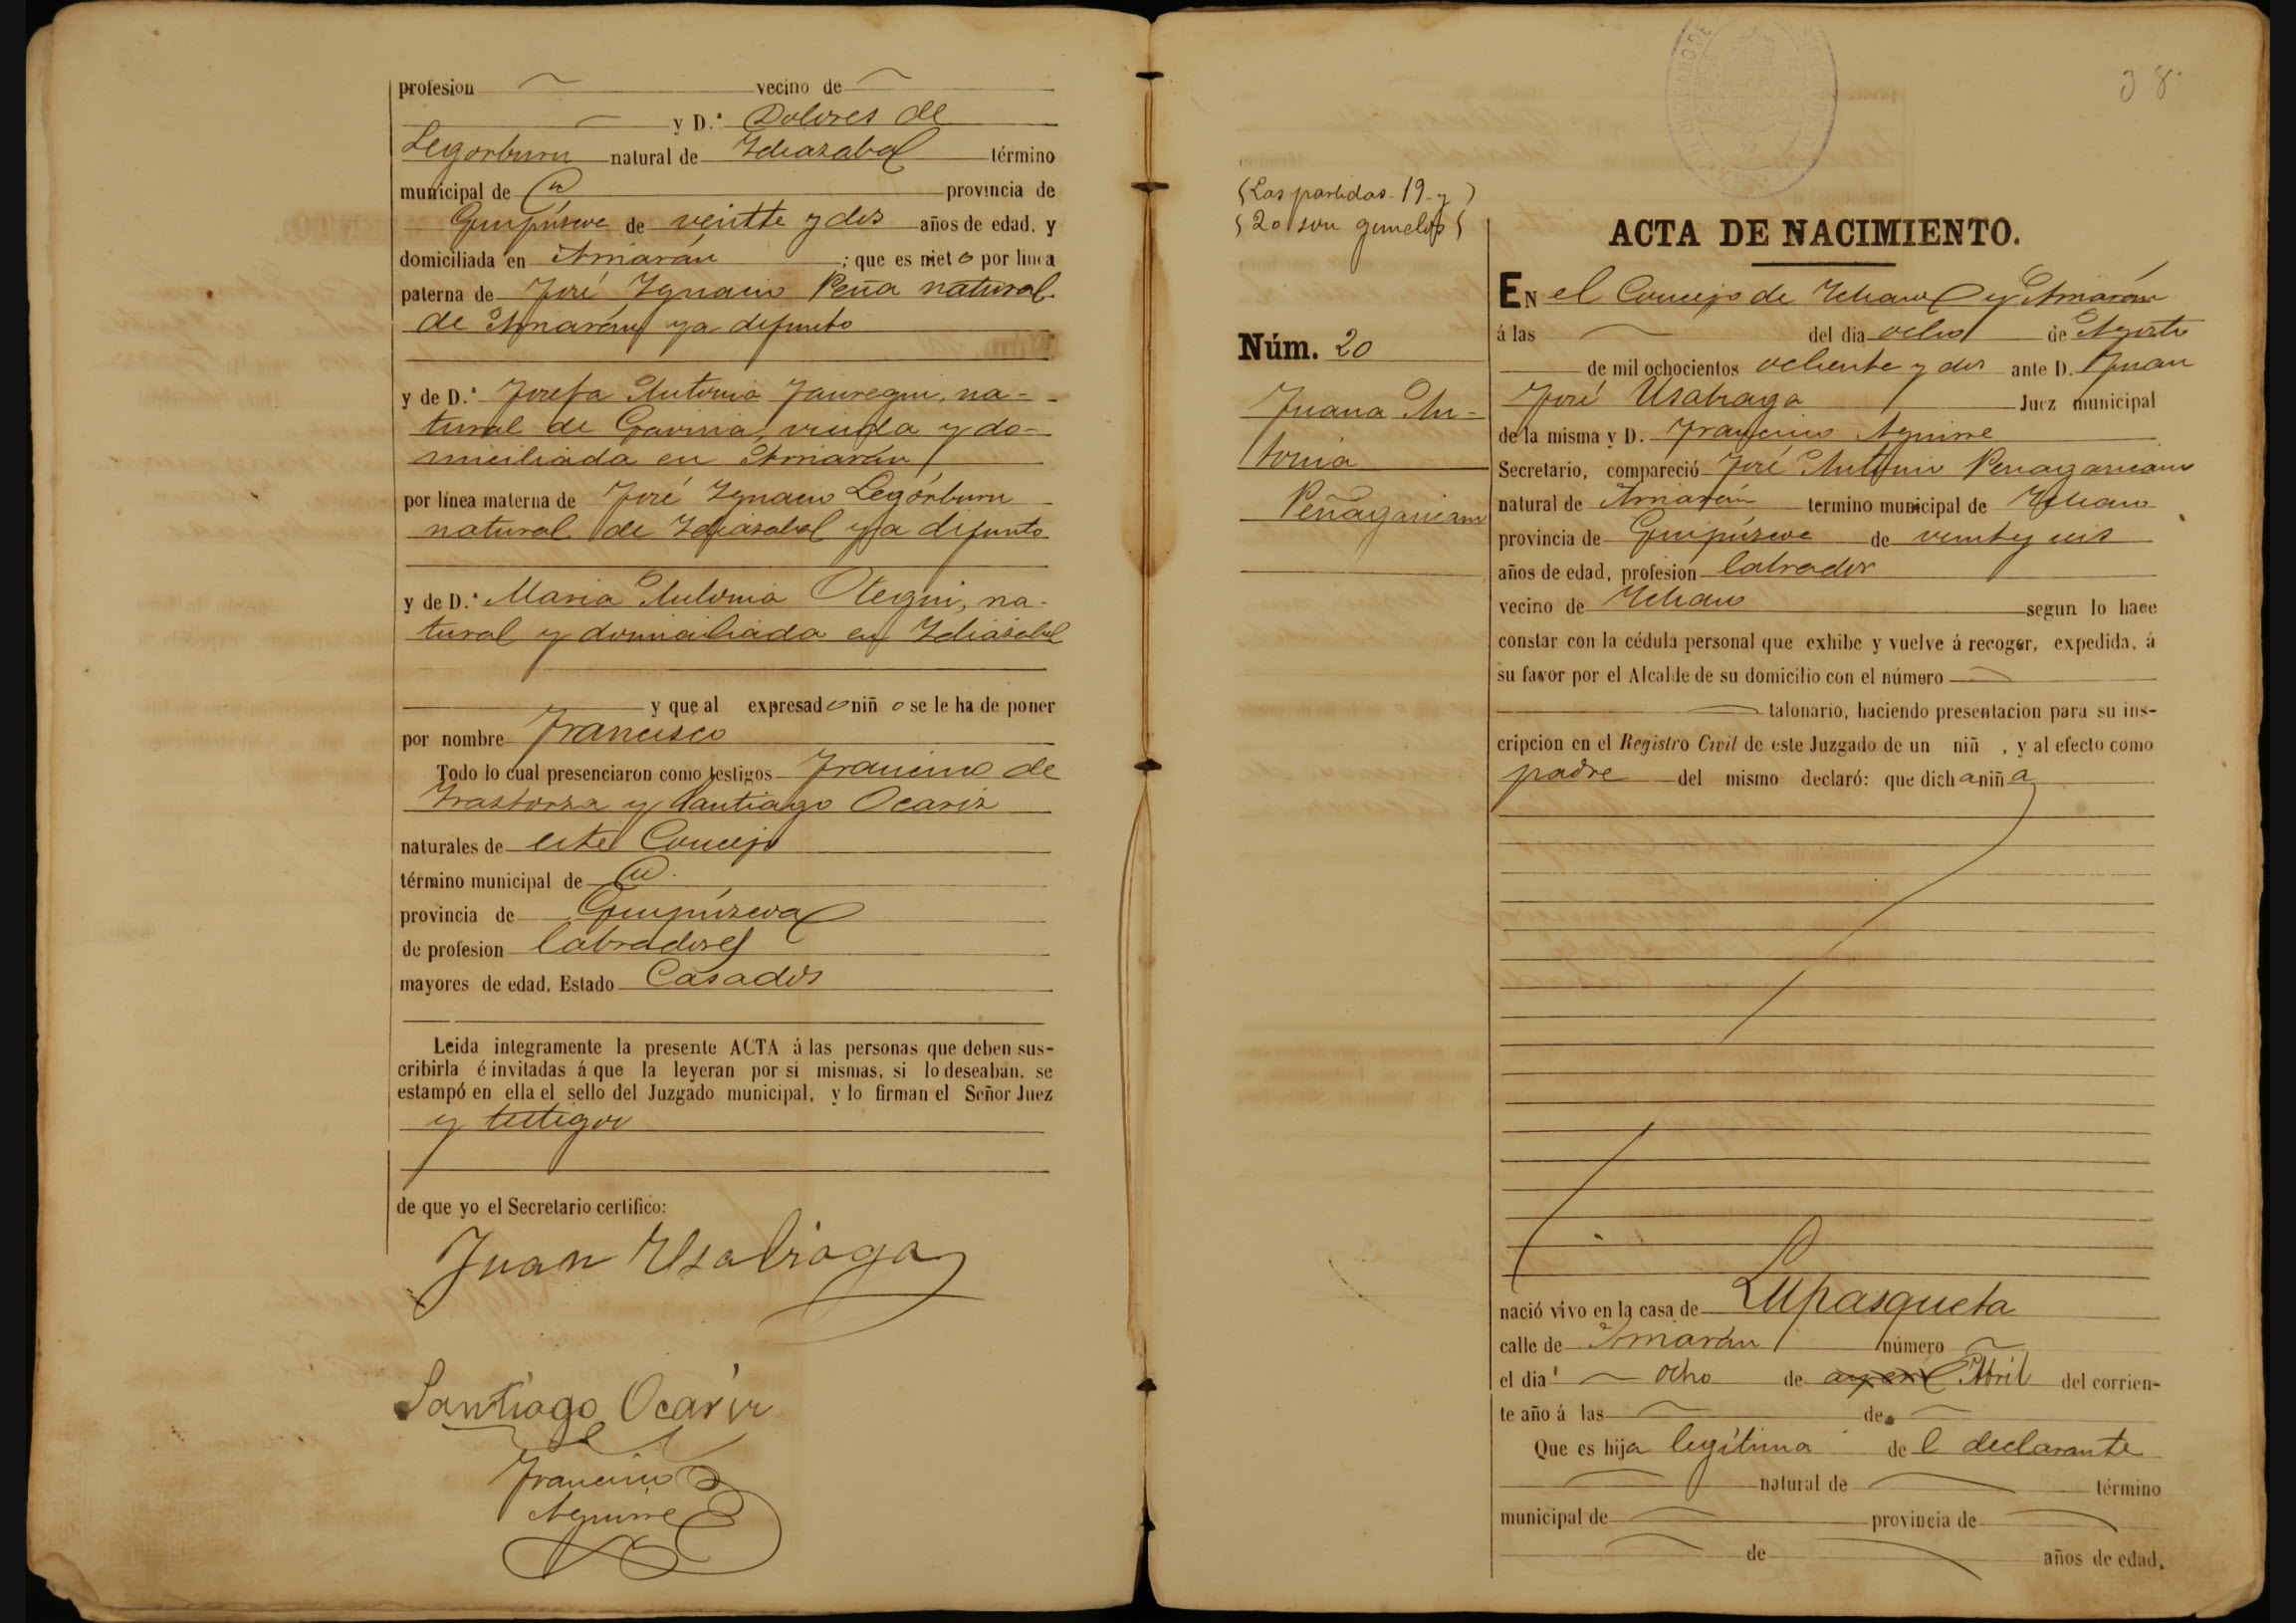 profesion vecino de
y D.ª Dolores de
Legorburu natural de Idiazabal término
municipal de id provincia de
Guipúzcoa de veintte y dos años de edad, y
domiciliada en Arnarán ; que es nieto por linea
paterna de José Ygnacio Peña natural
de Arnarán ya difunto
y de D.ª Josefa Antonia Jauregui, na-
tural de Gaviria, viuda y do-
miciliada en Arnarán
por línea materna de José Ygnacio Legórburu
natural de Idiazabal ya difunto
y de D.ª Maria Antonia Otegui, na-
tural y domiciliada en Idiázabal
y que al expresado niño se le ha de poner
por nombre Francisco
Todo lo cual presenciaron como testigos Francisco de
Yrastorza y Santiago Ocariz
naturales de este Concejo
término municipal de id.
provincia de Guipúzcoa
de profesion labradores
mayores de edad, Estado Casados
Leida integramente la presente ACTA á las personas que deben sus-
cribirla é invitadas á que la leyeran por sí mismas, si lo deseaban, se
estampó en ella el sello del Juzgado municipal, y lo firman el Señor Juez
y testigos
de que yo el Secretario certifico:
Juan Usabiaga
Santiago Ocariz
Francisco
Aguirre
38
(Las partidas 19 y)
(20 son gemelos)
ACTA DE NACIMIENTO.
EN el Concejo de Ichaso y Arnarán
á las del dia ocho de Agosto
de mil ochocientos ochenta y dos ante D. Juan
José Usabiaga Juez municipal
de la misma y D. Francisco Aguirre
Secretario, compareció José Antonio Penagaricano
natural de Arnarán termino municipal de Ichaso
provincia de Guipúzcoa de veinte y seis
años de edad, profesion labrador
vecino de Ichaso segun lo hace
constar con la cédula personal que exhibe y vuelve á recoger, expedida, á
su favor por el Alcalde de su domicilio con el número
talonario, haciendo presentacion para su ins-
cripcion en el Registro Civil de este Juzgado de un niñ , y al efecto como
padre del mismo declaró: que dicha niña
Núm. 20
Juana An-
tonia
Peñagaricano
nació vivo en la casa de Lupasqueta
calle de Arnarán número
el dia ocho de Abril del corrien-
te año á las de
Que es hija legítima de l declarante
natural de término
municipal de provincia de
de años de edad,